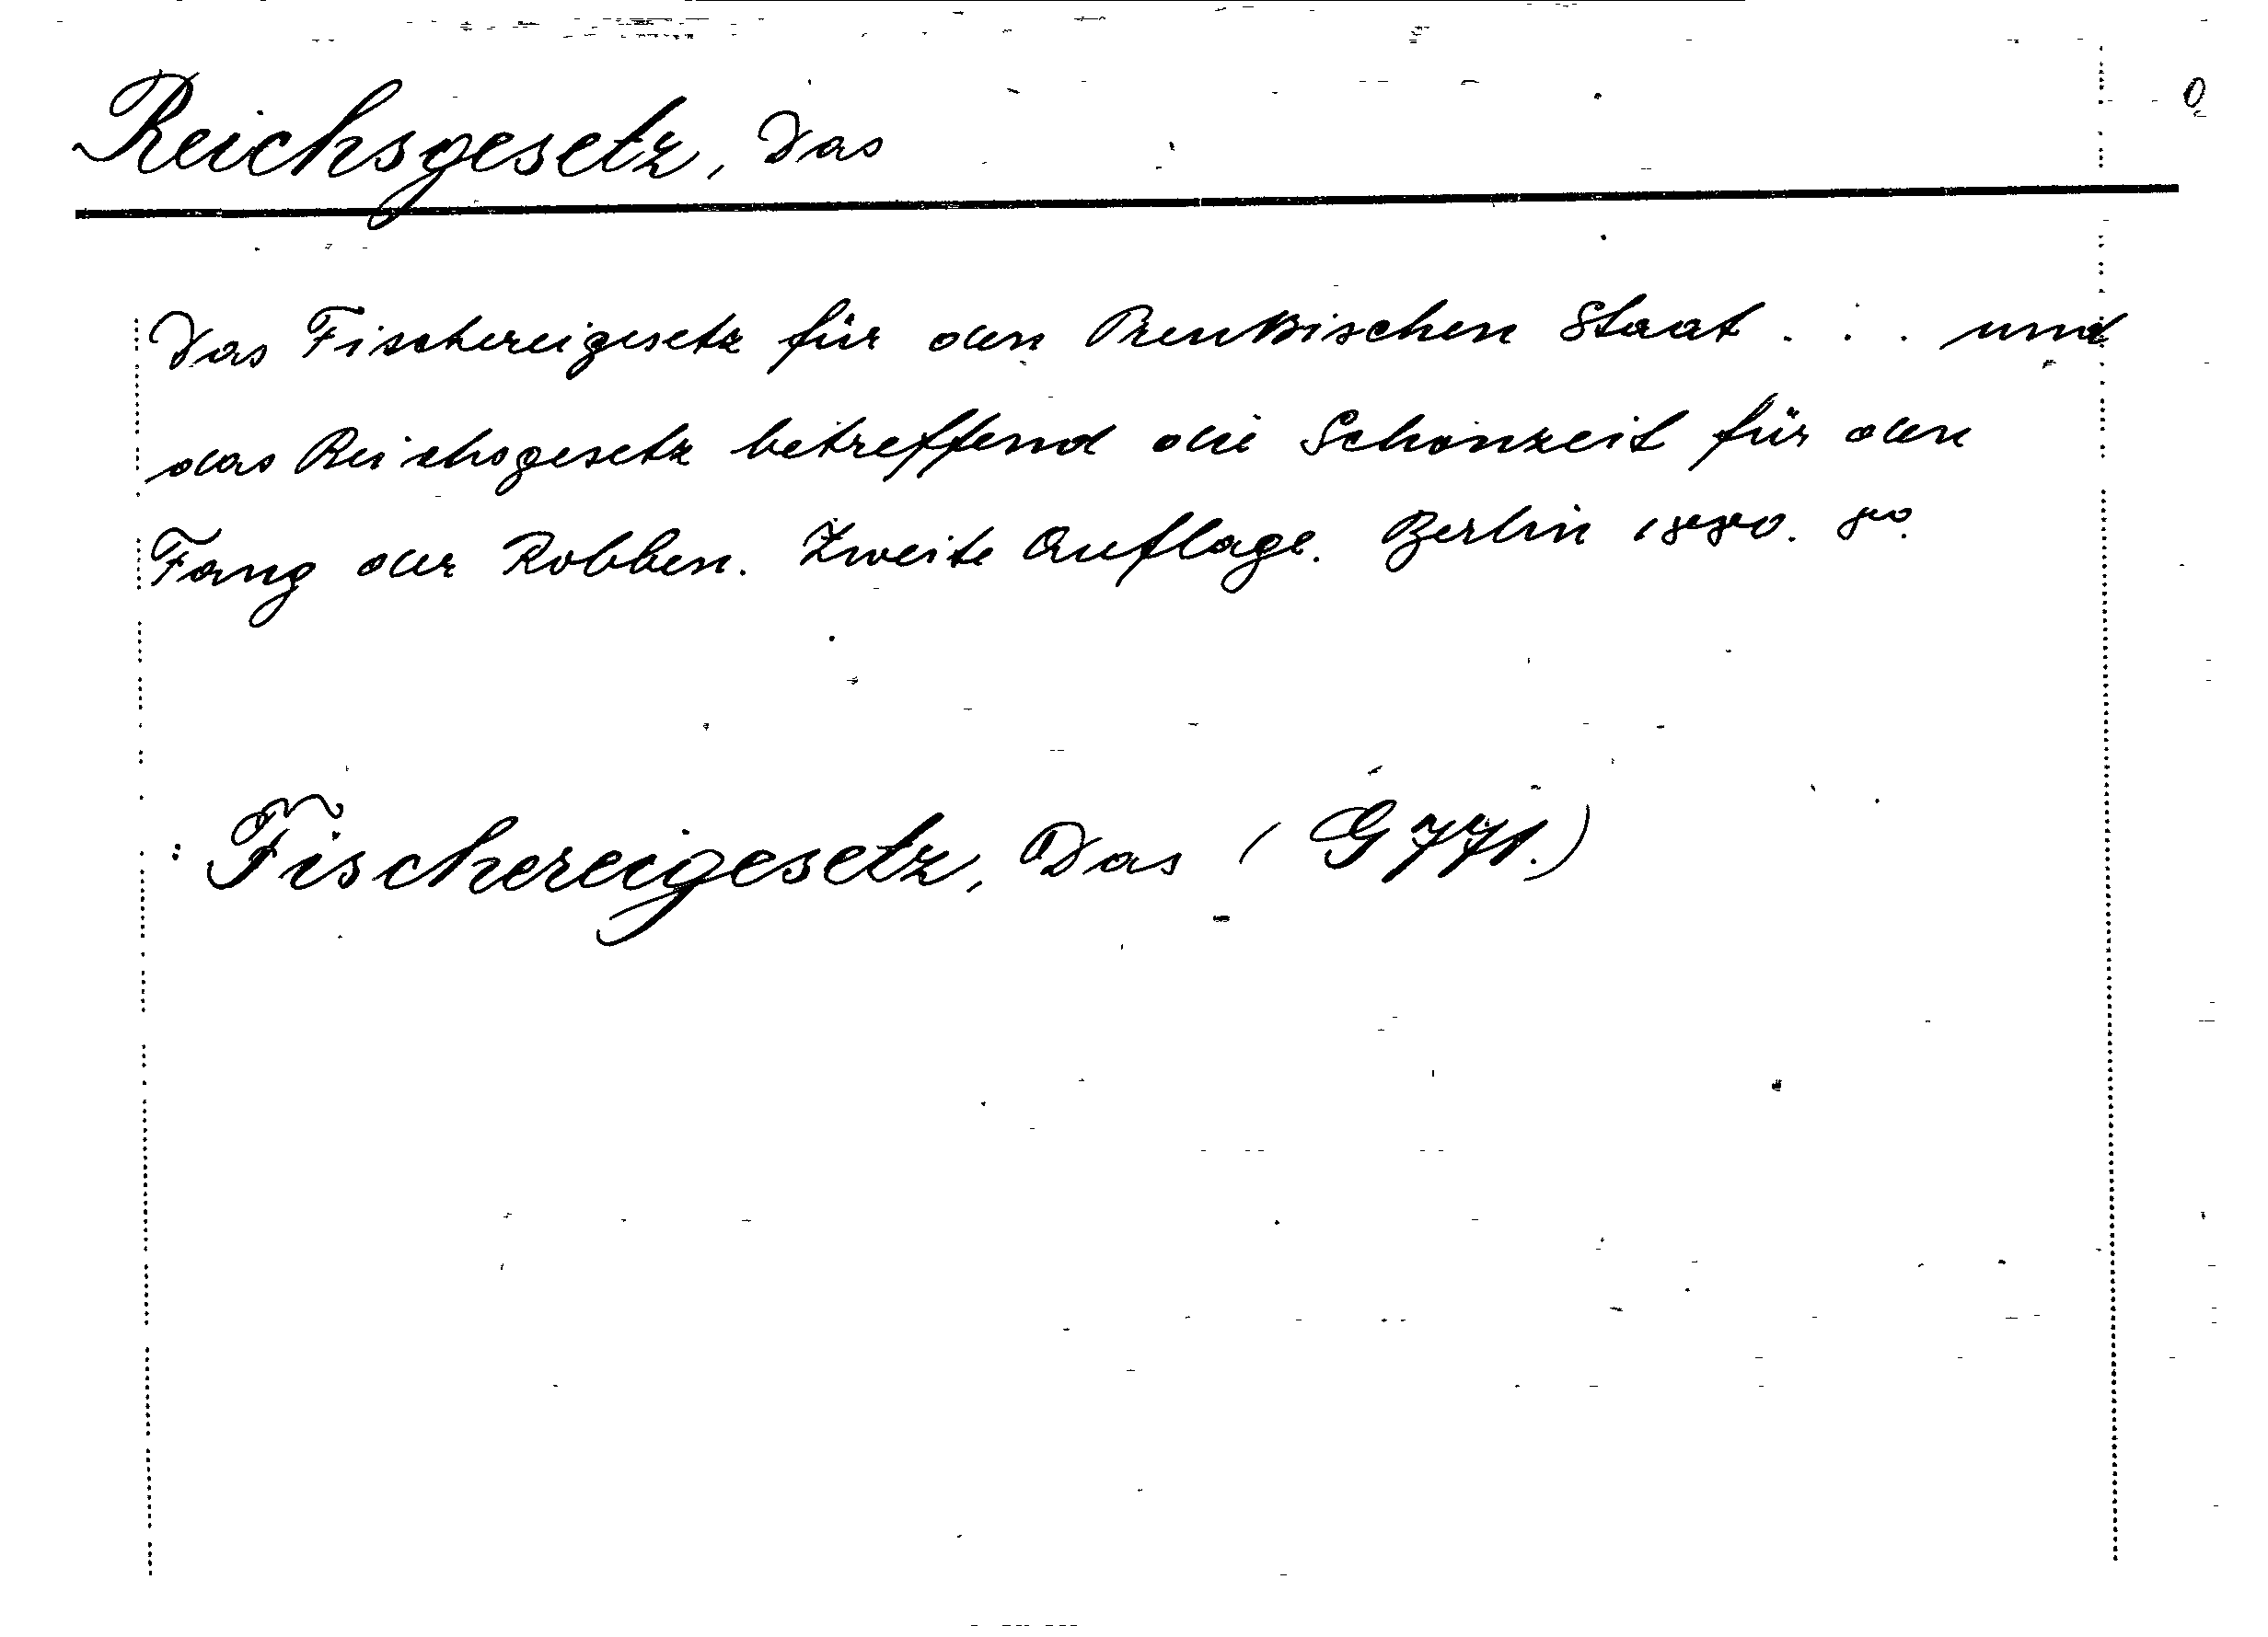 Reichsgesetz, Das
Das Fischereigesetz für den Preußischen Staat . . . und
das Reichsgesetz betreffend die Schonzeit für den
Fang der Robben. Zweite Auflage. Berlin 1880. 8°.
: Fischereigesetz, Das (G 771.)